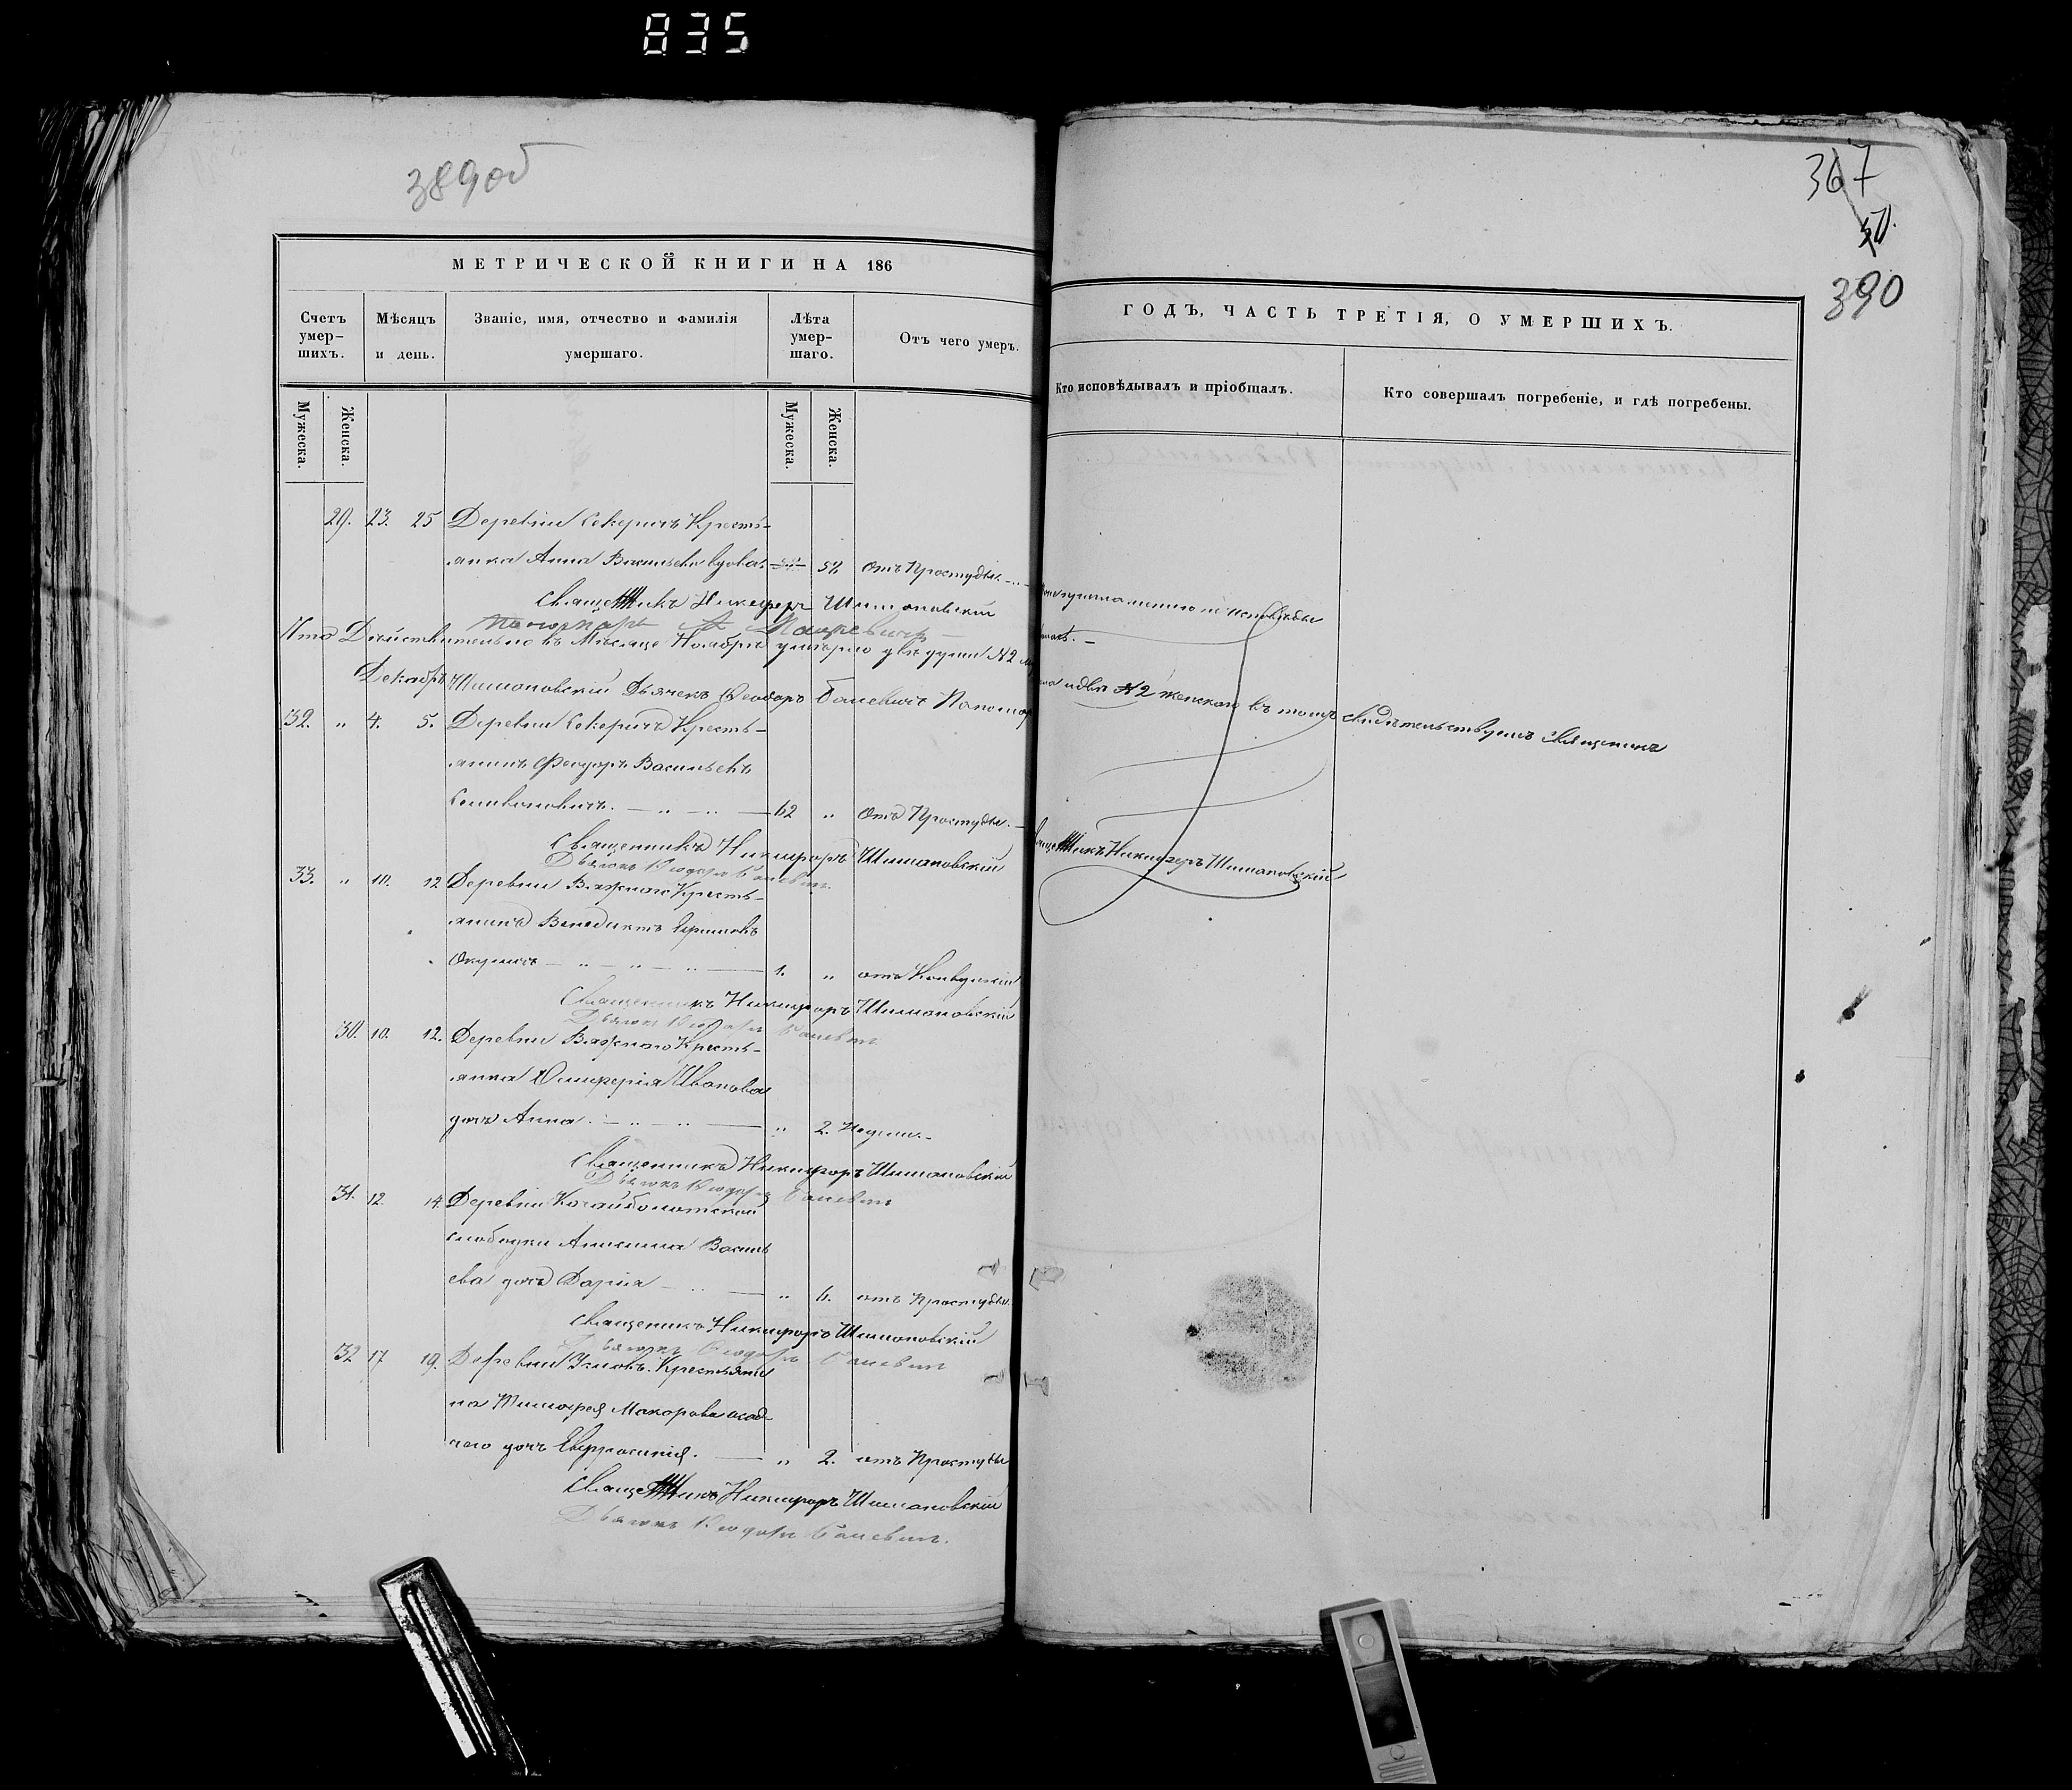 835
389об
367
50.
390
МЕТРИЧЕСКОЙ КНИГИ НА 186
ГОДЪ, ЧАСТЬ ТРЕТІЯ, О УМЕРШИХЪ.
Счетъ умер-шихъ.
Мѣсяцъ и день.
Званіе, имя, отчество и фамилія умершаго.
Лѣта умер-шаго.
Отъ чего умеръ.
Кто исповѣдывалъ и пріобщалъ.
Кто совершалъ погребеніе, и гдѣ погребены.
Мужеска.
Женска.
Мужеска.
Женска.
29. 23. 25 Деревни Секеричъ Кресть-
янка Анна Васильева вдова 54 Отъ Простуды.
Священникъ Никифоръ Шимановскій
Пономарь
Что Дѣйствительно въ Мѣсяцѣ Ноябрѣ умерло двѣ души №2
женскаго въ томъ свидѣтельствуемъ Священникъ
Декабрь Шимановскій Дьячекъ Ѳеодоръ Баневичъ Пономарь
32. „ 4. 5. Деревни Секеричъ Кресть-
янинъ Феодоръ Васильевъ
62 „ Отъ Простуды.
Священникъ Никифоръ Шимановскій
Дьячекъ Ѳеодоръ Баневичъ.
Священникъ Никифоръ Шимановскій
33. „ 10. 12 Деревни Вяжного Кресть-
янинъ Венедиктъ
Окуличъ 1. „ отъ Конвульсіи
Священникъ Никифоръ Шимановскій
Дьячекъ Ѳеодоръ Баневичъ
30. 10. 12. Деревни Вяжного Кресть-
янка Иванова
дочь Анна. „ 2. Недели.
Священникъ Никифоръ Шимановскій
Дьячекъ Ѳеодоръ Баневичъ
31. 12. 14. Деревни
слободки Василь
ева дочь Дарія „ 6. отъ Простуды.
Священникъ Никифоръ Шимановскій
Дьячекъ Ѳеодоръ Баневичъ
32 17 19. Деревни Крестьяни
на Тимофея Макарова
дочь Евфросинія. „ 2. отъ Простуды
Священникъ Никифоръ Шимановскій
Дьячекъ Ѳеодоръ Баневичъ.